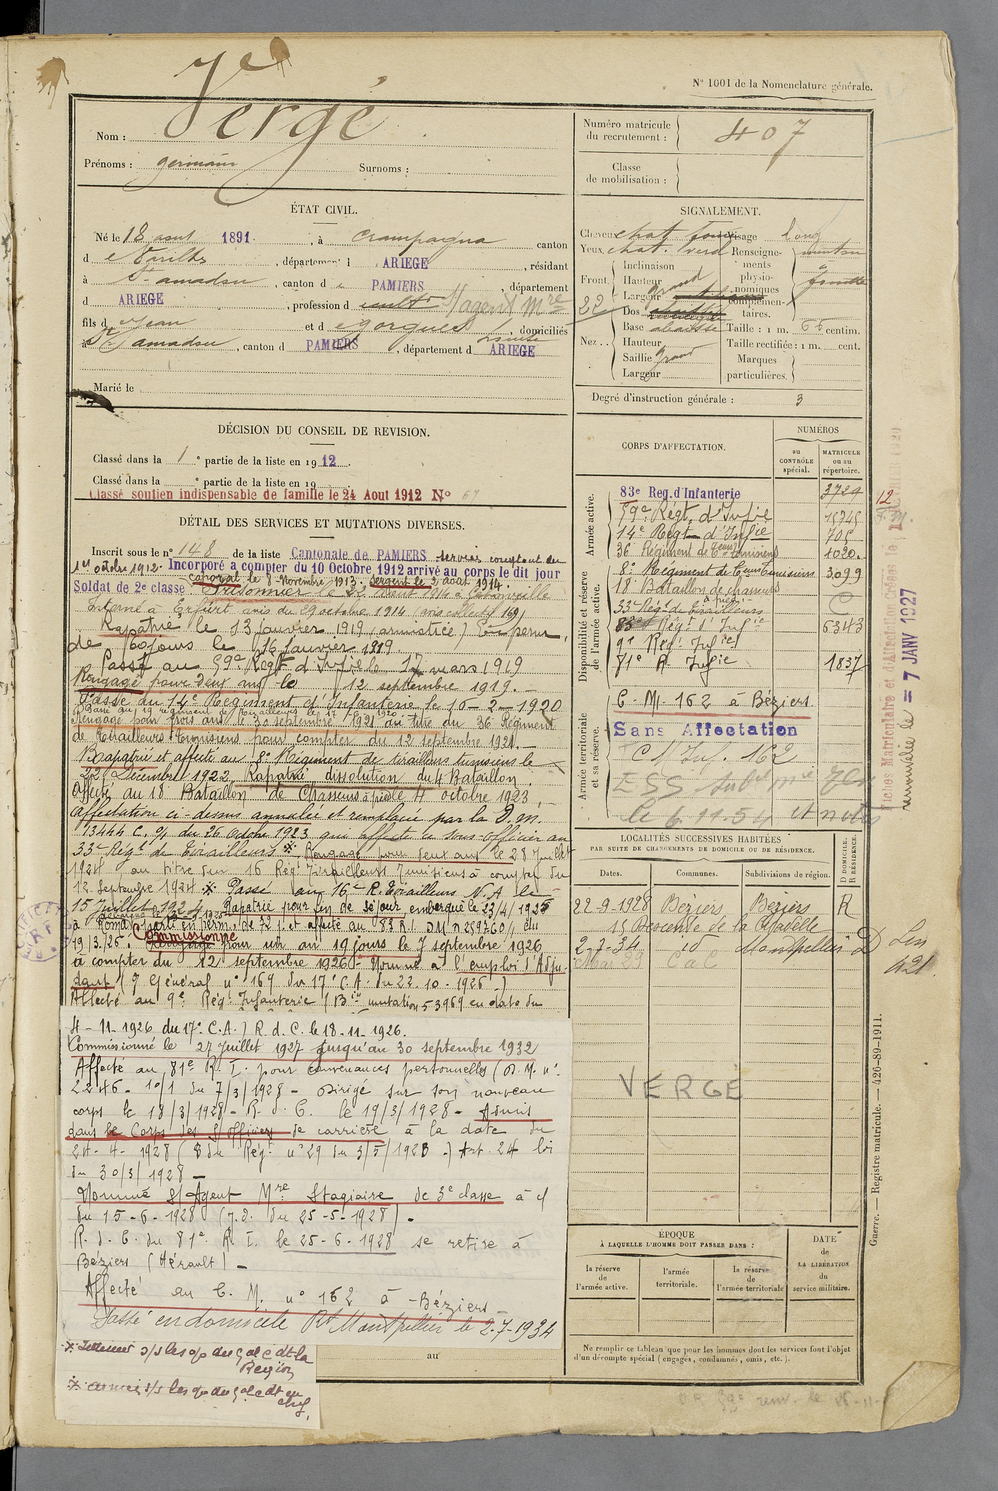 N° 1001 de la Nomenclature générale.
Nom : Vergé
Prénoms : Germain Surnoms :
Numéro matricule du recrutement : 407
Classe de mobilisation :
ÉTAT CIVIL.
Né le 18 aout 1891, à Crampagna canton
d e Varilhes, département d ARIEGE, résidant
à St amadou, canton d e PAMIERS, département
d ARIEGE, profession d cult S/agent Mre
fils de Jean et d e Gorgues, domiciliés
à St amadou, canton d PAMIERS, département d ARIEGE
Marié le
SIGNALEMENT.
Cheveux chat. Visage long
Yeux chat. verd Renseigne-
ments
physio-
nomiques
complémen-
taires.
menton
à
fossette
Front Inclinaison
Hauteur grand
Largeur
22
Nez Dos
Base abaissé
Hauteur
Saillie grand
Largeur
Taille : 1 m. 65 centim.
Taille rectifiée : 1 m. cent.
Marques
particulières.
Degré d'instruction générale : 3
DÉCISION DU CONSEIL DE REVISION.
Classé dans la 1e partie de la liste en 1912.
Classé dans la e partie de la liste en 19
Classé soutien indispensable de famille le 24 Aout 1912 N° 67
DÉTAIL DES SERVICES ET MUTATIONS DIVERSES.
Inscrit sous le n° 148 de la liste Cantonale de PAMIERS services comptant du
1er octobre 1912. Incorporé a compter du 10 Octobre 1912 arrivé au corps le dit jour
Soldat de 2e classe caporal le 8 Novembre 1913. Sergent le 2 aout 1914.
Prisonnier le 22 aout 1914 à
Interné à Erfurt avis du 9 octobre 1914 (avis collectif 169)
Rapatrié le 13 janvier 1919 (armistice) En perm.
de 60 jours le 16 janvier 1919.
Passé au 59e Régt d'Infie le 17 mars 1919
Rengagé pour deux ans le 12 septembre 1919.
Passé au 14e Régiment d'Infanterie le 10-2-1920
Rengagé pour trois ans le 30 septembre 1921 au titre du 36 Régiment
de Tirailleurs Tunisiens pour compter du 12 septembre 1921.
Rapatrié et affecté au 8e Régiment de tirailleurs tunisiens le
22 Décembre 1922. Rapatrié dissolution du 4 Bataillon.
Affecté au 18 Bataillon de Chasseurs à pied le 4 octobre 1923.
Affectation ci-dessus annulée et remplacée par la D.m.
13444 C. 9/1 du 26 Octobre 1923 qui affecte ce sous-officier au
33e Régt de Tirailleurs * Rengagé pour deux ans le 28 Juillet
1924 au titre du 16 Régt Tirailleurs Tunisiens à compter du
12 Septembre 1924 * Passé au 16e R. Tirailleurs N.A. le
15 Juillet 1924. Rapatrié pour fin de séjour embarqué le 23/4/1925
19/3/26. Commissionné
Rengagé pour un an 19 jours le 7 septembre 1926
à compter du 12 septembre 1926. Nommé à l'emploi d'Adju-
dant (9 Général n° 169 du 17e C.A. du 22.10.1926.)
Affecté au 9e Régt Infanterie (Bin mutation 53969 en date du
4-11-1926 du 17e C.A.) R. d. C. le 18-11-1926.
Commissionné le 27 juillet 1927 jusqu'au 30 septembre 1932
Affecté au 81e R. I. pour convenances personnelles (D. M. n°
2246 - 10/1 du 7/3/1928 - Dirigé sur son nouveau
corps le 18/3/1928 - R. d. C. le 19/3/1928 - Admis
dans le Corps des S/officiers de carrière à la date du
24-4-1928 (O du Régt n° 29 du 3/5/1928 -) Art. 24 loi
du 30/3/1928 -
Nommé S/Agent Mre Stagiaire de 3e classe à c/
du 15-6-1928 (J.O. du 25-5-1928) -
R. d. C. du 81e R. I. le 25-6-1928 se retire à
Béziers (Hérault) -
Affecté au C. M. n° 162 à Béziers
Passé en domicile Rt Montpellier le 2-7-1934
au
CORPS D'AFFECTATION.
NUMÉROS
AU CONTRÔLE spécial.
MATRICULE ou au répertoire.
Armée active.
83e Reg. d'Infanterie 3729
59e Régt d'Infie 15745
14e Régt d'Infie 705
36 Régiment de Teurs Tunisiens 1020.
Disponibilité et réserve de l'armée active.
8e Régiment de Teurs Tunisiens 3099
18 Bataillon de chasseurs à pied
33e Régt de Tirailleurs
83e Régt d'Infie 6343
9e Régt Infie
81e R. Infie 1837
Armée territoriale et sa réserve.
C. M. 162 à Béziers
Sans Affectation
C M Inf. 162
le 6.11.54
= 7 JANV 1927
LOCALITÉS SUCCESSIVES HABITÉES
PAR SUITE DE CHANGEMENTS DE DOMICILE OU DE RÉSIDENCE.
Dates. Communes. Subdivisions de région. D DOMICILE. R RÉSIDENCE.
22-9-1928 Béziers Béziers R
15 Descente de la Citadelle
2-7-34 id Montpellier D
VERGÉ
421
Guerre. — Registre matricule. — 426-89-1911.
ÉPOQUE
À LAQUELLE L'HOMME DOIT PASSER DANS :
la réserve de l'armée active.
l'armée territoriale.
la réserve de l'armée territoriale
DATE de LA LIBÉRATION du service militaire.
Ne remplir ce tableau que pour les hommes dont les services font l'objet
d'un décompte spécial (engagés, condamnés, omis, etc.).